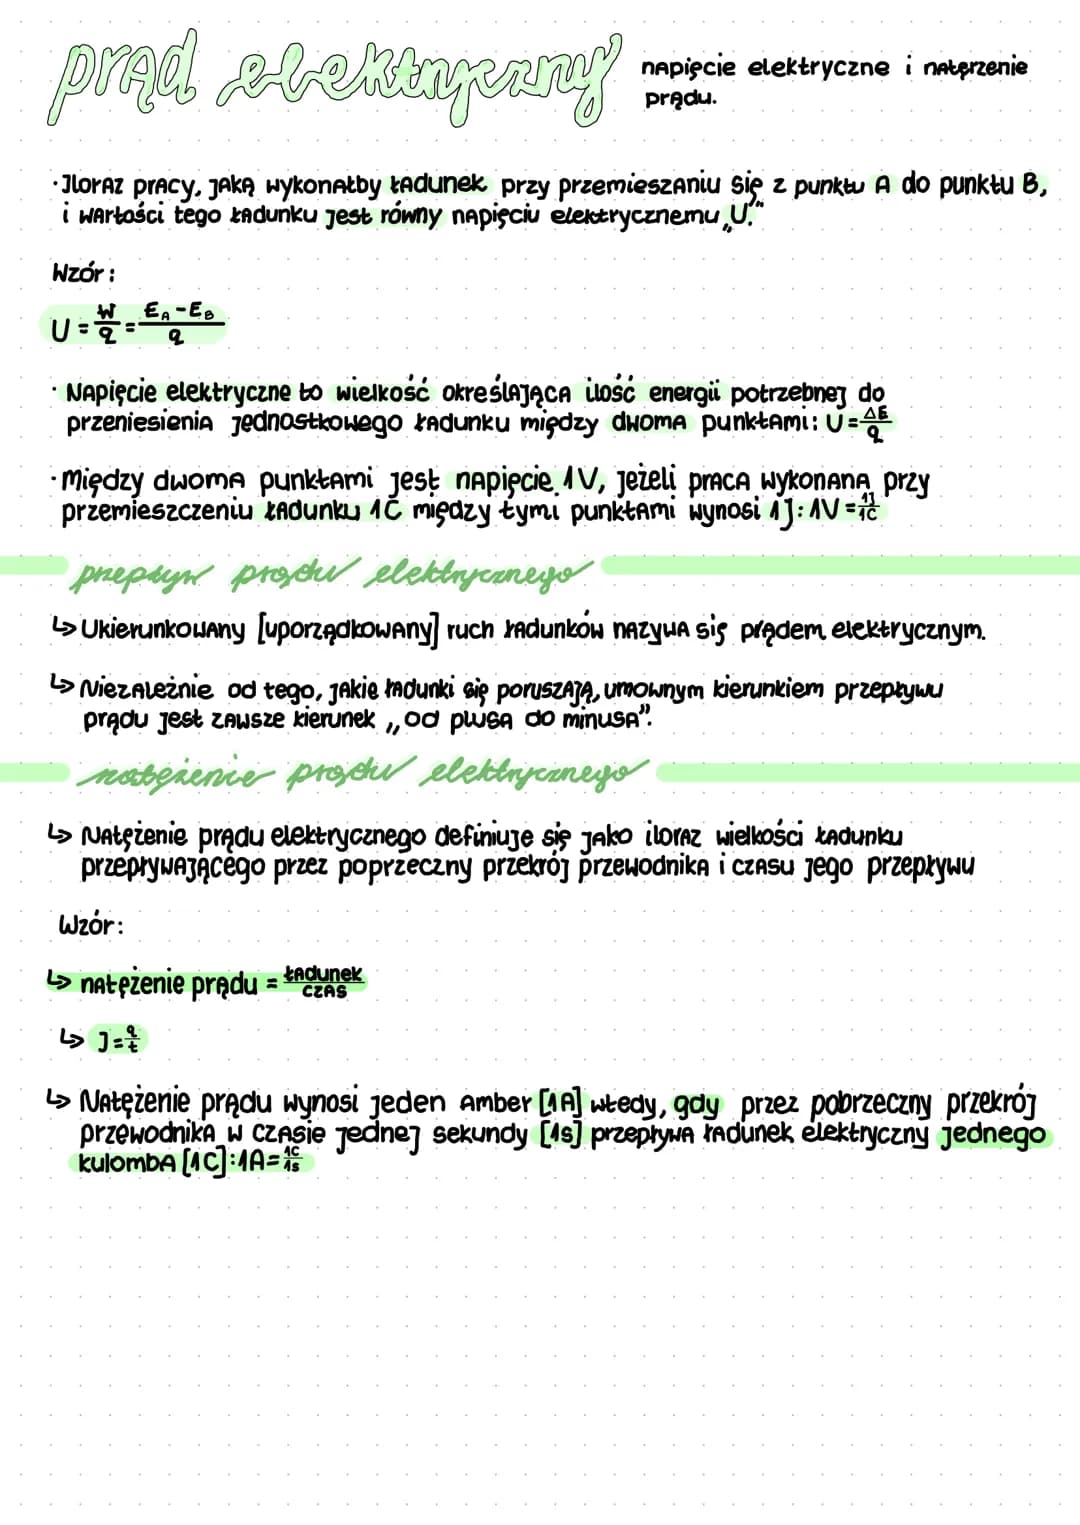 prąd elektryczny
napięcie elektryczne i natęrzenie
prądu.
·Iloraz pracy, jaką wykonałby ładunek przy przemieszaniu się z punktu A do punktu B,
i wartości tego ładunku jest równy napięciu elektrycznemu „U."
Wzór:
U = W/q = E_A - E_B/q
· Napięcie elektryczne to wielkość określająca ilość energii potrzebnej do
przeniesienia jednostkowego ładunku między dwoma punktami: U = ΔE/q
·Między dwoma punktami jest napięcie 1V, jeżeli praca wykonana przy
przemieszczeniu ładunku 1C między tymi punktami wynosi 1J: 1V = 1J/1C
przepływ prądu elektrycznego
↳ Ukierunkowany [uporządkowany] ruch ładunków nazywa się prądem elektrycznym.
↳ Niezależnie od tego, jakie ładunki się poruszają, umownym kierunkiem przepływu
prądu jest zawsze kierunek ,,od plusa do minusa".
natężenie prądu elektrycznego
↳ Natężenie prądu elektrycznego definiuje się jako iloraz wielkości ładunku
przepływającego przez poprzeczny przekrój przewodnika i czasu jego przepływu
Wzór:
↳ natężenie prądu = ładunek/czas
↳ I = q/t
↳ Natężenie prądu wynosi jeden Amber [1A] wtedy, gdy przez pobrzeczny przekrój
przewodnika w czasie jednej sekundy [1s] przepływa ładunek elektryczny jednego
kulomba [1C]: 1A = 1C/1s